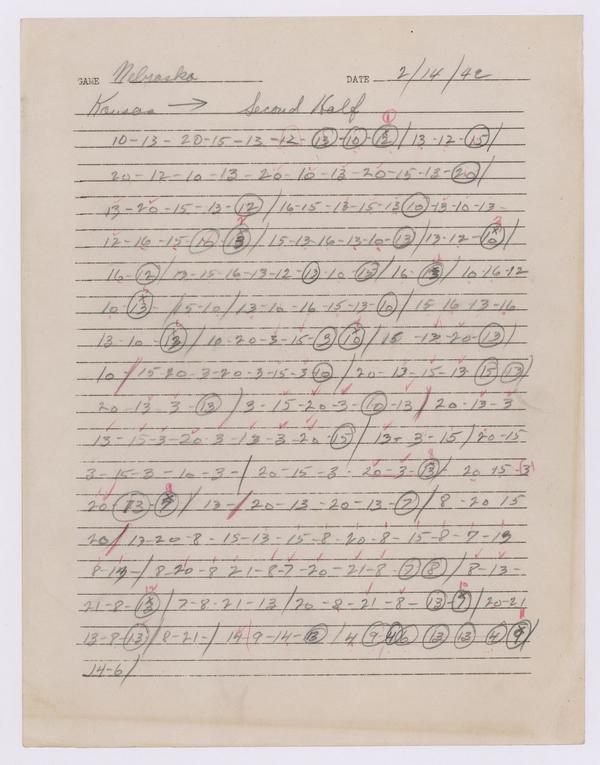 GAME Nebraska DATE 2/14/42
Kansas → Second Half
1
10-13-20-15-13-12-13-10-12/13-12-15/
20-12-10-13-20-10-13-20-15-13-20/
13-20-15-13-12/16-15-13-15-13-10-13-10-13-
2 3
12-16-15-16-3/15-13-16-13-10-13/13-12-10/
16-12/13-15-16-13-12-13-10-13/16-3/10-16-12
10-13-/15-10/13-10-16-15-13-10/15-16-13-16
13-10-12/10-20-3-15-3-10/15-13-20-13/
10-/15-20-3-20-3-15-3-10/20-13-15-13 15 13/
20-13-3-13/3-15-20-3-10-13/20-13-3
13-15-3-20-3-13-3-20-15/13-3-15/20-15
3-15-3-10-3-/20-15-3-20-3-13/20-15-3
20-13-7/13-/20-13-20-13-7/8-20-15
20/13-20-8-15-13-15-8-20-8-15-8-7-13
8-13-/8-20-8-21-8-7-20-21-8-7-8/8-13-
21-8-13/7-8-21-13/20-8-21-8-13-7/20-21
13-8-13/8-21-/14-9-14-13/4 9 4 6 13 13 4 9/
14-6/